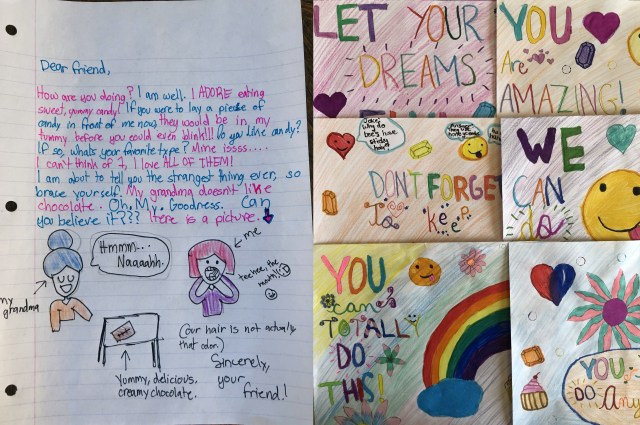 Dear friend,
How are you doing? I am well. I ADORE eating
sweet, yummy candy! If you were to lay a piece of
candy in front of me now, they would be in my
tummy before you could even blink!!! Do you like candy?
If so, whats your favorite type? Mine issss....
I can't think of 1, I love ALL OF THEM!
I am about to tell you the strangest thing ever, so
brace yourself. My grandma doesn't like
chocolate. Oh. My. Goodness. Can
you believe it??? there is a picture.
Hmmm....
Naaaahh.
me
teehee, the
mouth!!
my
grandma
(our hair is not actually
that color.)
Yummy, delicious,
creamy chocolate.
Sincerely,
your
friend!
LET YOUR
DREAMS
YOU
Are
AMAZING!
Joke:
Why do
bee's have
sticky
hair?
Answer:
They use
DON'T FORGET
To KEEP
WE
CAN
do
YOU
can
TOTALLY
DO
THIS!
YOU
DO Any